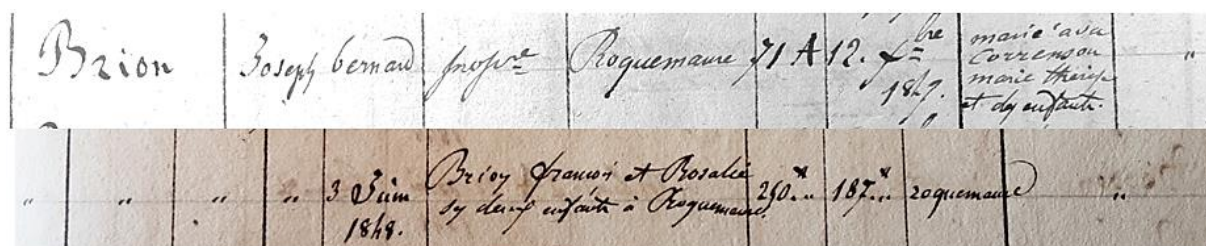 Brion Joseph bernard prop.re Roquemaure 71 A 12.
1847.
marié avec
Correnson
marie thérèse
et des enfants. "
" " " " 3 Juin
1848.
Brion françois et Rosalie
ses deux enfants à Roquemaure.
250.. 187.. roquemaure "